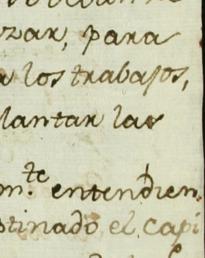 zar, para
los trabajos,
lantar las
om.te entendien
stinado el capi